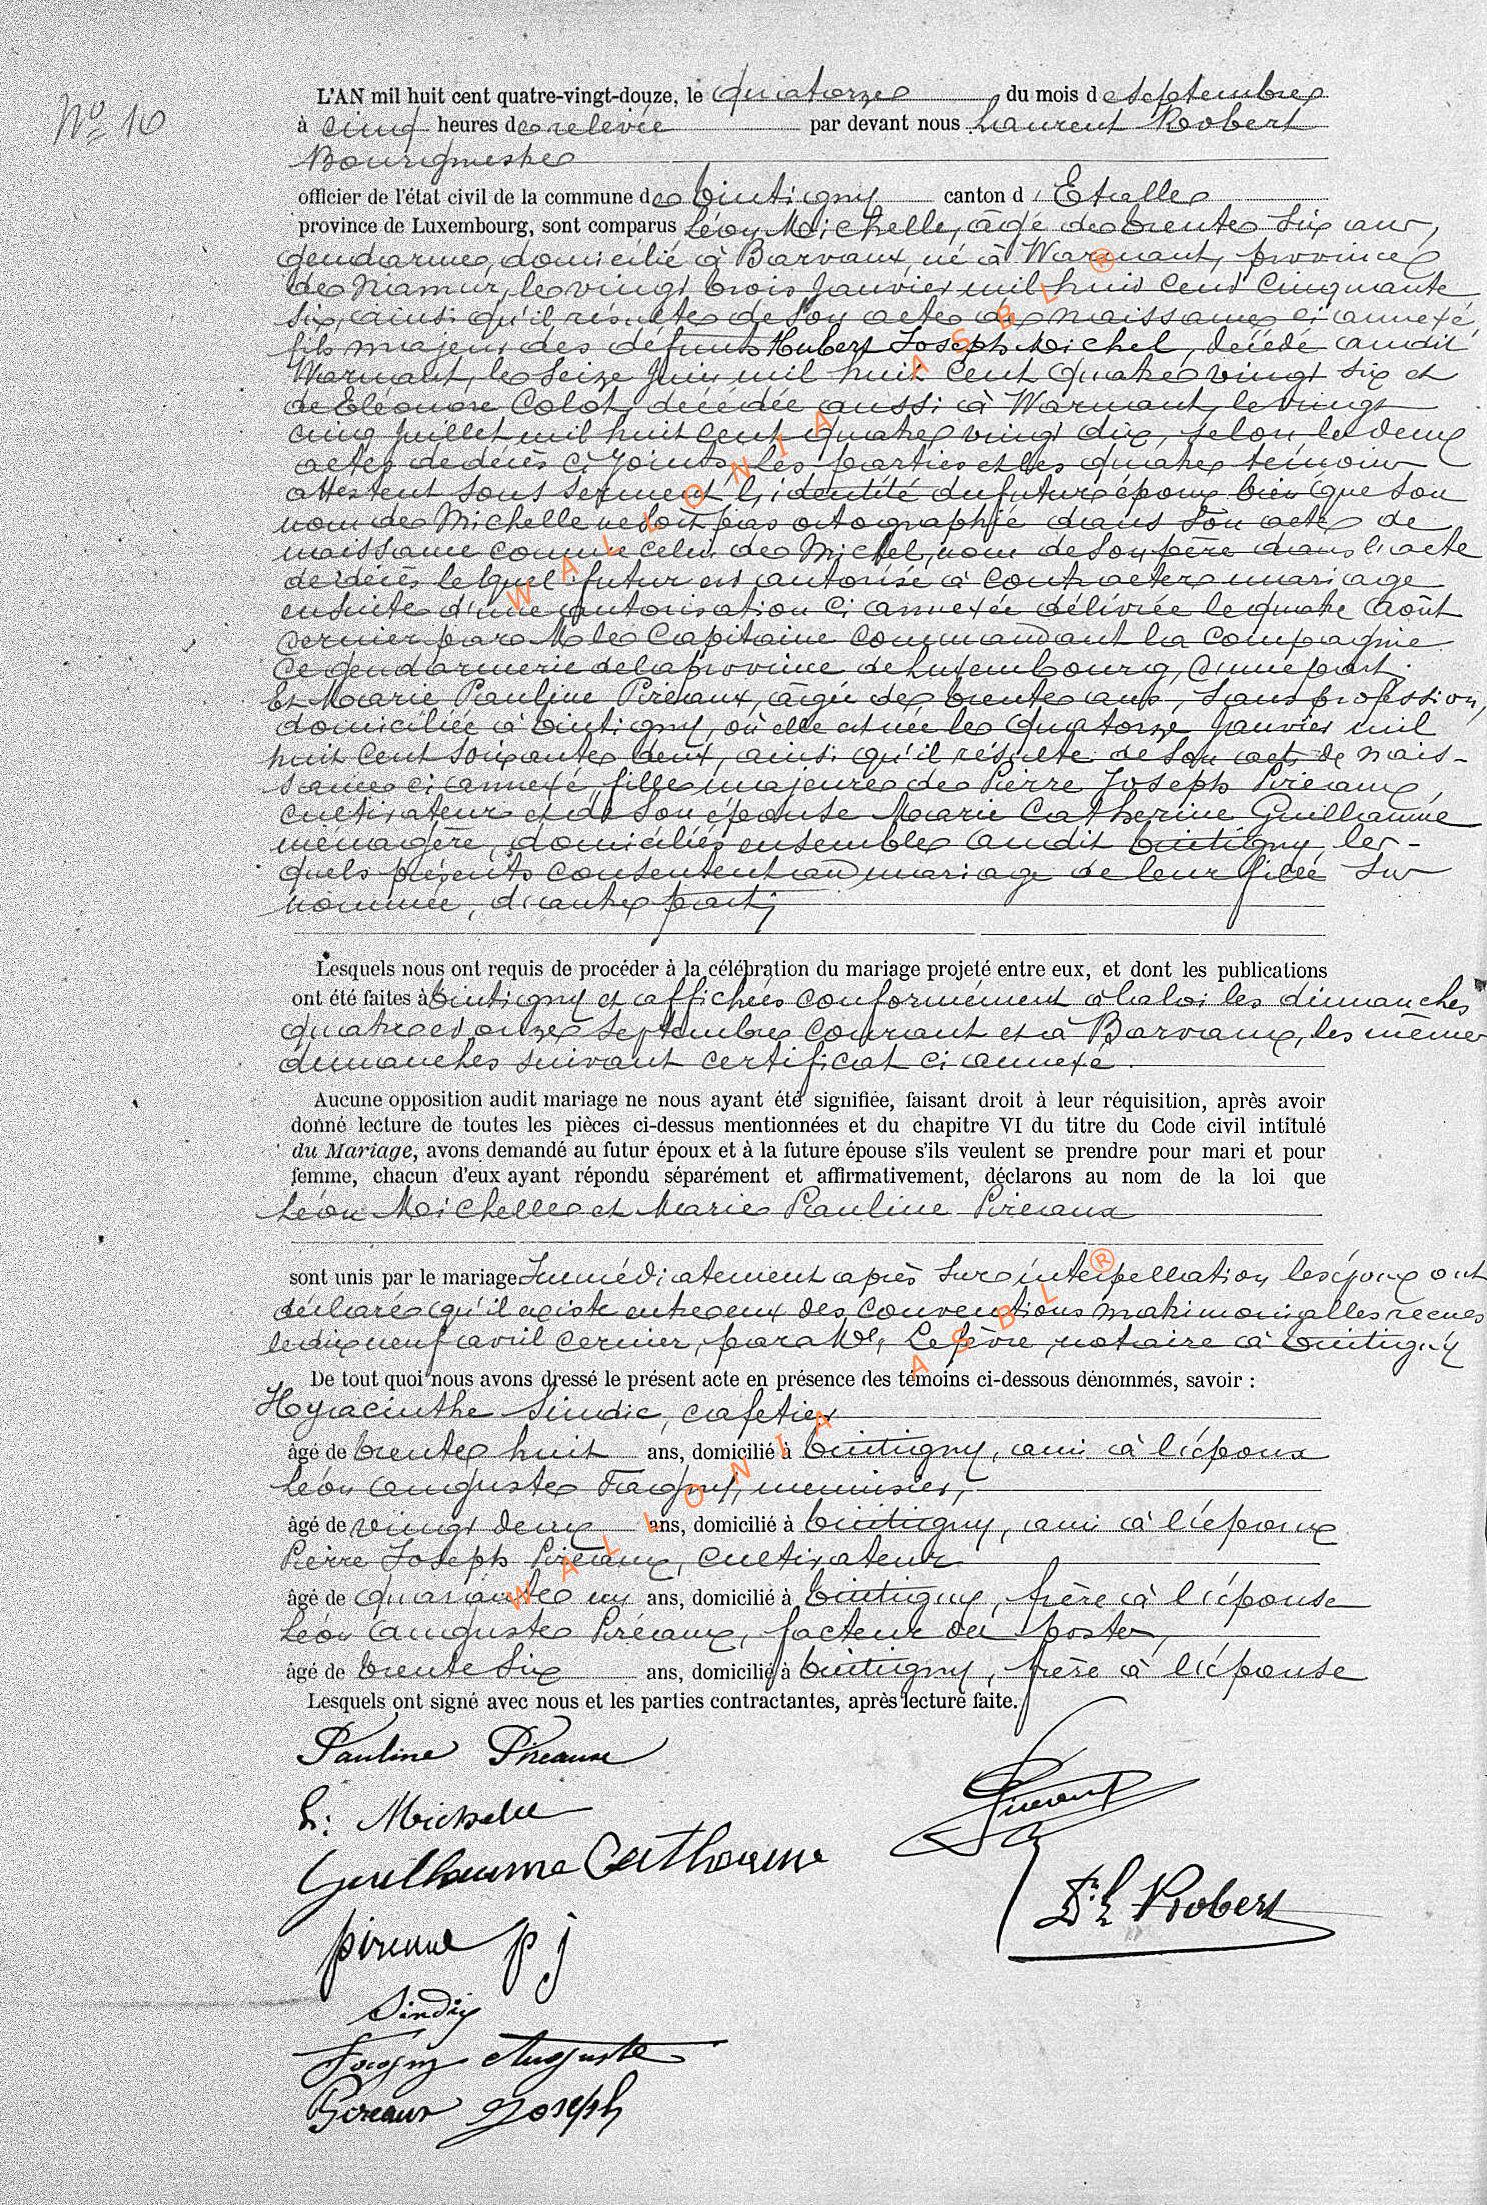 No 10
L'AN mil huit cent quatre-vingt-douze, le quatorze du mois de Septembre
à cinq heures de relevée par devant nous Laurent Robert
Bourgmestre
officier de l'état civil de la commune de Tintigny canton d'Etalle
province de Luxembourg, sont comparus Léon Michelle, âgé de trente six ans,
gendarme, domicilié à Barvaux, né à Warnant, province
de Namur, le vingt trois Janvier mil huit cent cinquante
six, ainsi qu'il résulte de son acte de naissance ci annexé,
fils majeur des défunts Hubert Joseph Michel, décédé audit
Warnant, le seize Juin mil huit cent quatre vingt six et
de Eléonore Colot, décédée aussi à Warnant, le vingt
cinq Juillet mil huit cent quatre vingt dix, selon les deux
actes de décès ci joints. Les parties et les quatre témoins
attestent sous serment l'identité du futur époux bien que son
nom de Michelle ne soit pas ortographié dans son acte de
naissance comme celui de Michel, nom de son père dans l'acte
de décès lequel futur est autorisé à contracter mariage
ensuite d'une autorisation ci annexée délivrée le quatre août
dernier par M le Capitaine commandant la compagnie
de gendarmerie de la province de Luxembourg, d'une part.
Et Marie Pauline Piréaux, âgée de trente ans, sans profession,
domiciliée à Tintigny, où elle est née le quatorze Janvier mil
huit cent soixante deux, ainsi qu'il résulte de son acte de nais-
sance ci annexé, fille majeure de Pierre Joseph Piréaux,
cultivateur et de son épouse Marie Catherine Guillaume
ménagère, domiciliés ensemble audit Tintigny, les-
quels présents consentent au mariage de leur fille sus
nommée, d'autre part;
Lesquels nous ont requis de procéder à la célébration du mariage projeté entre eux, et dont les publications
ont été faites à Tintigny et affichées conformément à la loi les dimanches
quatre et onze Septembre courant et à Barvaux, les mêmes
dimanches suivant certificat ci annexé.
Aucune opposition audit mariage ne nous ayant été signifiée, faisant droit à leur réquisition, après avoir
donné lecture de toutes les pièces ci-dessus mentionnées et du chapitre VI du titre du Code civil intitulé
du Mariage, avons demandé au futur époux et à la future épouse s'ils veulent se prendre pour mari et pour
femme, chacun d'eux ayant répondu séparément et affirmativement, déclarons au nom de la loi que
Léon Michelle et Marie Pauline Piréaux
sont unis par le mariage. Immédiatement après sur interpellation les époux ont
déclaré qu'il existe entre eux des conventions matrimonialles recues
le dix neuf avril dernier, par Me Lefèvre, notaire à Tintigny
De tout quoi nous avons dressé le présent acte en présence des témoins ci-dessous dénommés, savoir :
Hyacinthe Sindic, cafetier
âgé de trente huit ans, domicilié à Tintigny, ami à l'époux
Léon Auguste Fragny, menuisier,
âgé de vingt deux ans, domicilié à Tintigny, ami à l'époux
Pierre Joseph Piréaux, cultivateur
âgé de quarante un ans, domicilié à Tintigny, frère à l'épouse
Léon Auguste Piréaux, facteur des postes,
âgé de trente six ans, domicilié à Tintigny, frère à l'épouse
Lesquels ont signé avec nous et les parties contractantes, après lecture faite.
Pauline Pireaux
L. Michelle
Guillaume Catherine
p j
Sindic
Auguste
Pireaux Joseph
Dr L Robert
WALLONIA ASBL ®
WALLONIA ASBL ®